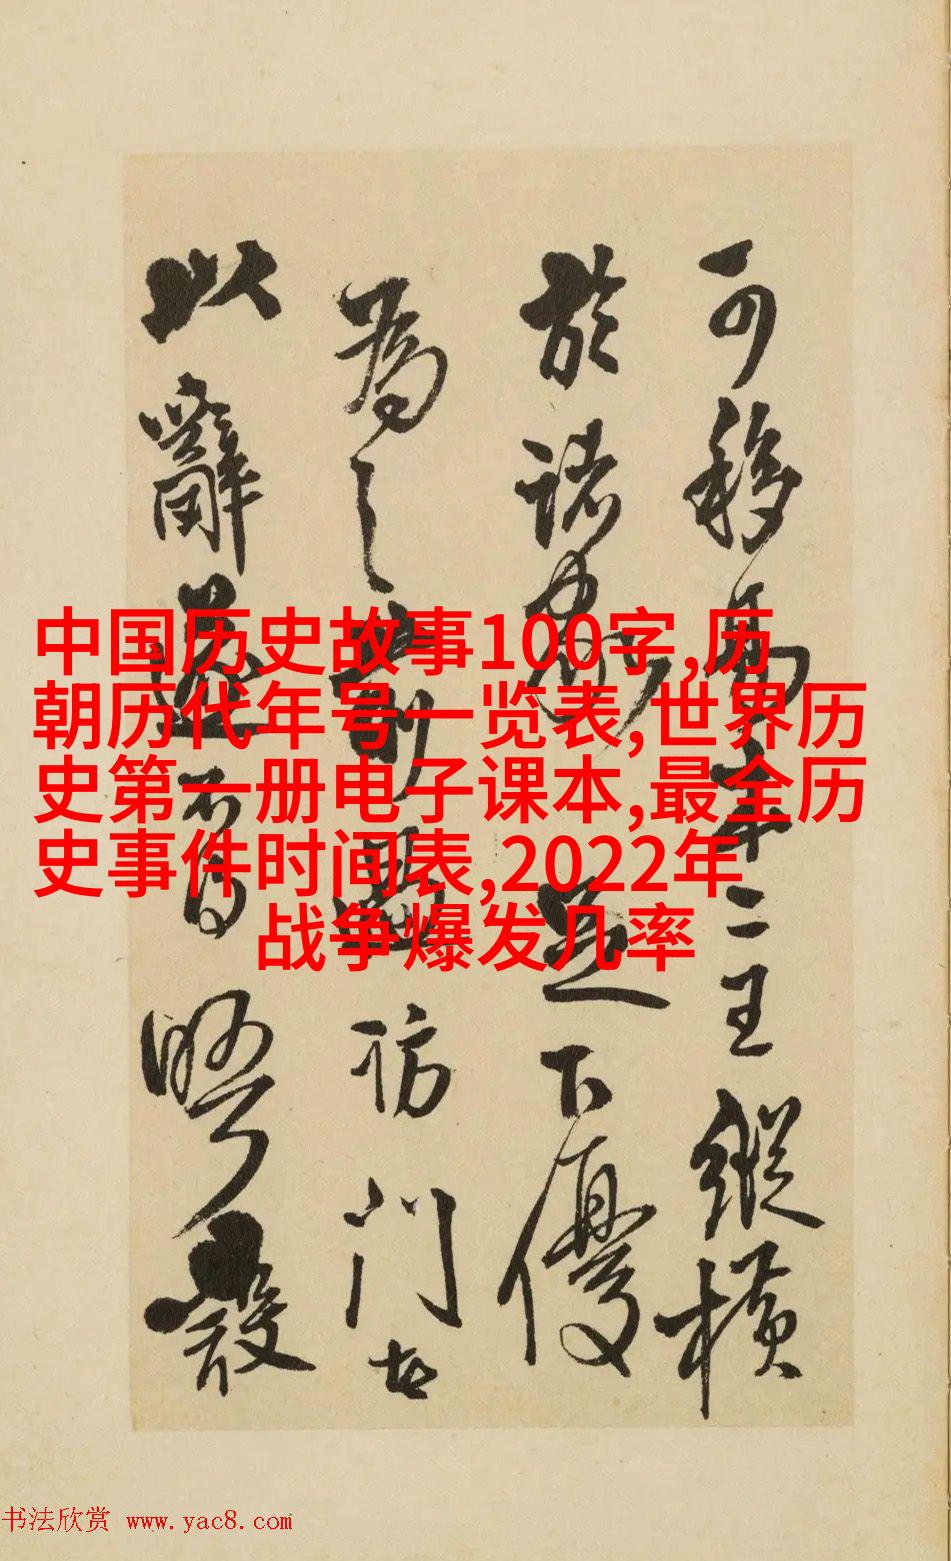 可移易年二王縱橫
於諸家足下優
為之
訪門古
以辭遂不得
中国历史故事100字,历
朝历代年号一览表,世界历
史第一册电子课本,最全历
史事件时间表,2022年
战争爆发几率
书法欣赏 www.yac8.com